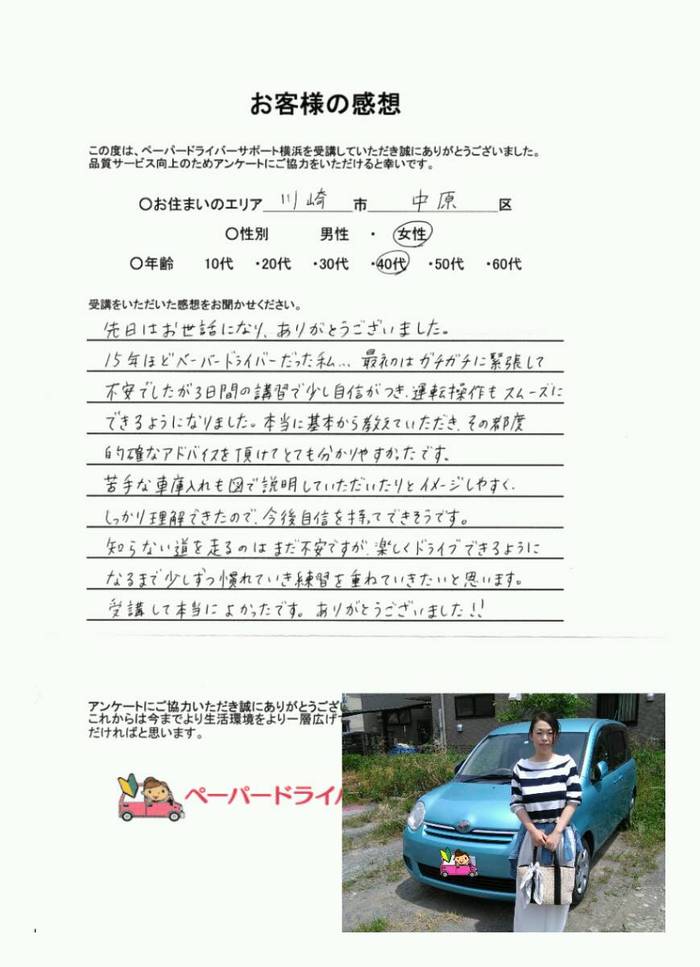 お客様の感想
この度は、ペーパードライバーサポート横浜を受講していただき誠にありがとうございました。
品質サービス向上のためアンケートにご協力をいただけると幸いです。
〇お住まいのエリア 川崎 市 中原 区
〇性別 男性 ・ 女性
〇年齢 10代 ・20代 ・30代 ・40代 ・50代 ・60代
受講をいただいた感想をお聞かせください。
先日はお世話になり、ありがとうございました。
15年ほどペーパードライバーだった私... 最初はガチガチに緊張して
不安でしたが3日間の講習で少し自信がつき、運転操作もスムーズに
できるようになりました。本当に基本から教えていただき、その都度
的確なアドバイスを頂けてとても分かりやすかったです。
苦手な車庫入れも図で説明していただいたりとイメージしやすく、
しっかり理解できたので、今後自信を持ってできそうです。
知らない道を走るのはまだ不安ですが、楽しくドライブできるように
なるまで少しずつ慣れていき練習を重ねていきたいと思います。
受講して本当によかったです。ありがとうございました!!
アンケートにご協力いただき誠にありがとうござい
これからは今までより生活環境をより一層広げ
だければと思います。
ペーパードライバ